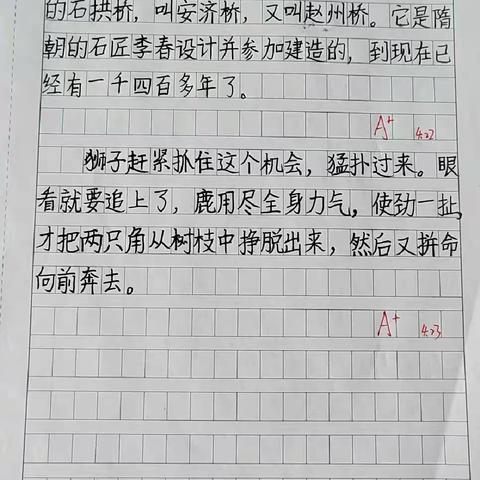 的石拱桥，叫安济桥，又叫赵州桥。它是隋
朝的石匠李春设计并参加建造的，到现在已
经有一千四百多年了。
A+ 4.22
狮子赶紧抓住这个机会，猛扑过来。眼
看就要追上了，鹿用尽全身力气，使劲一扯，
才把两只角从树枝中挣脱出来，然后又拼命
向前奔去。
A+ 4.23